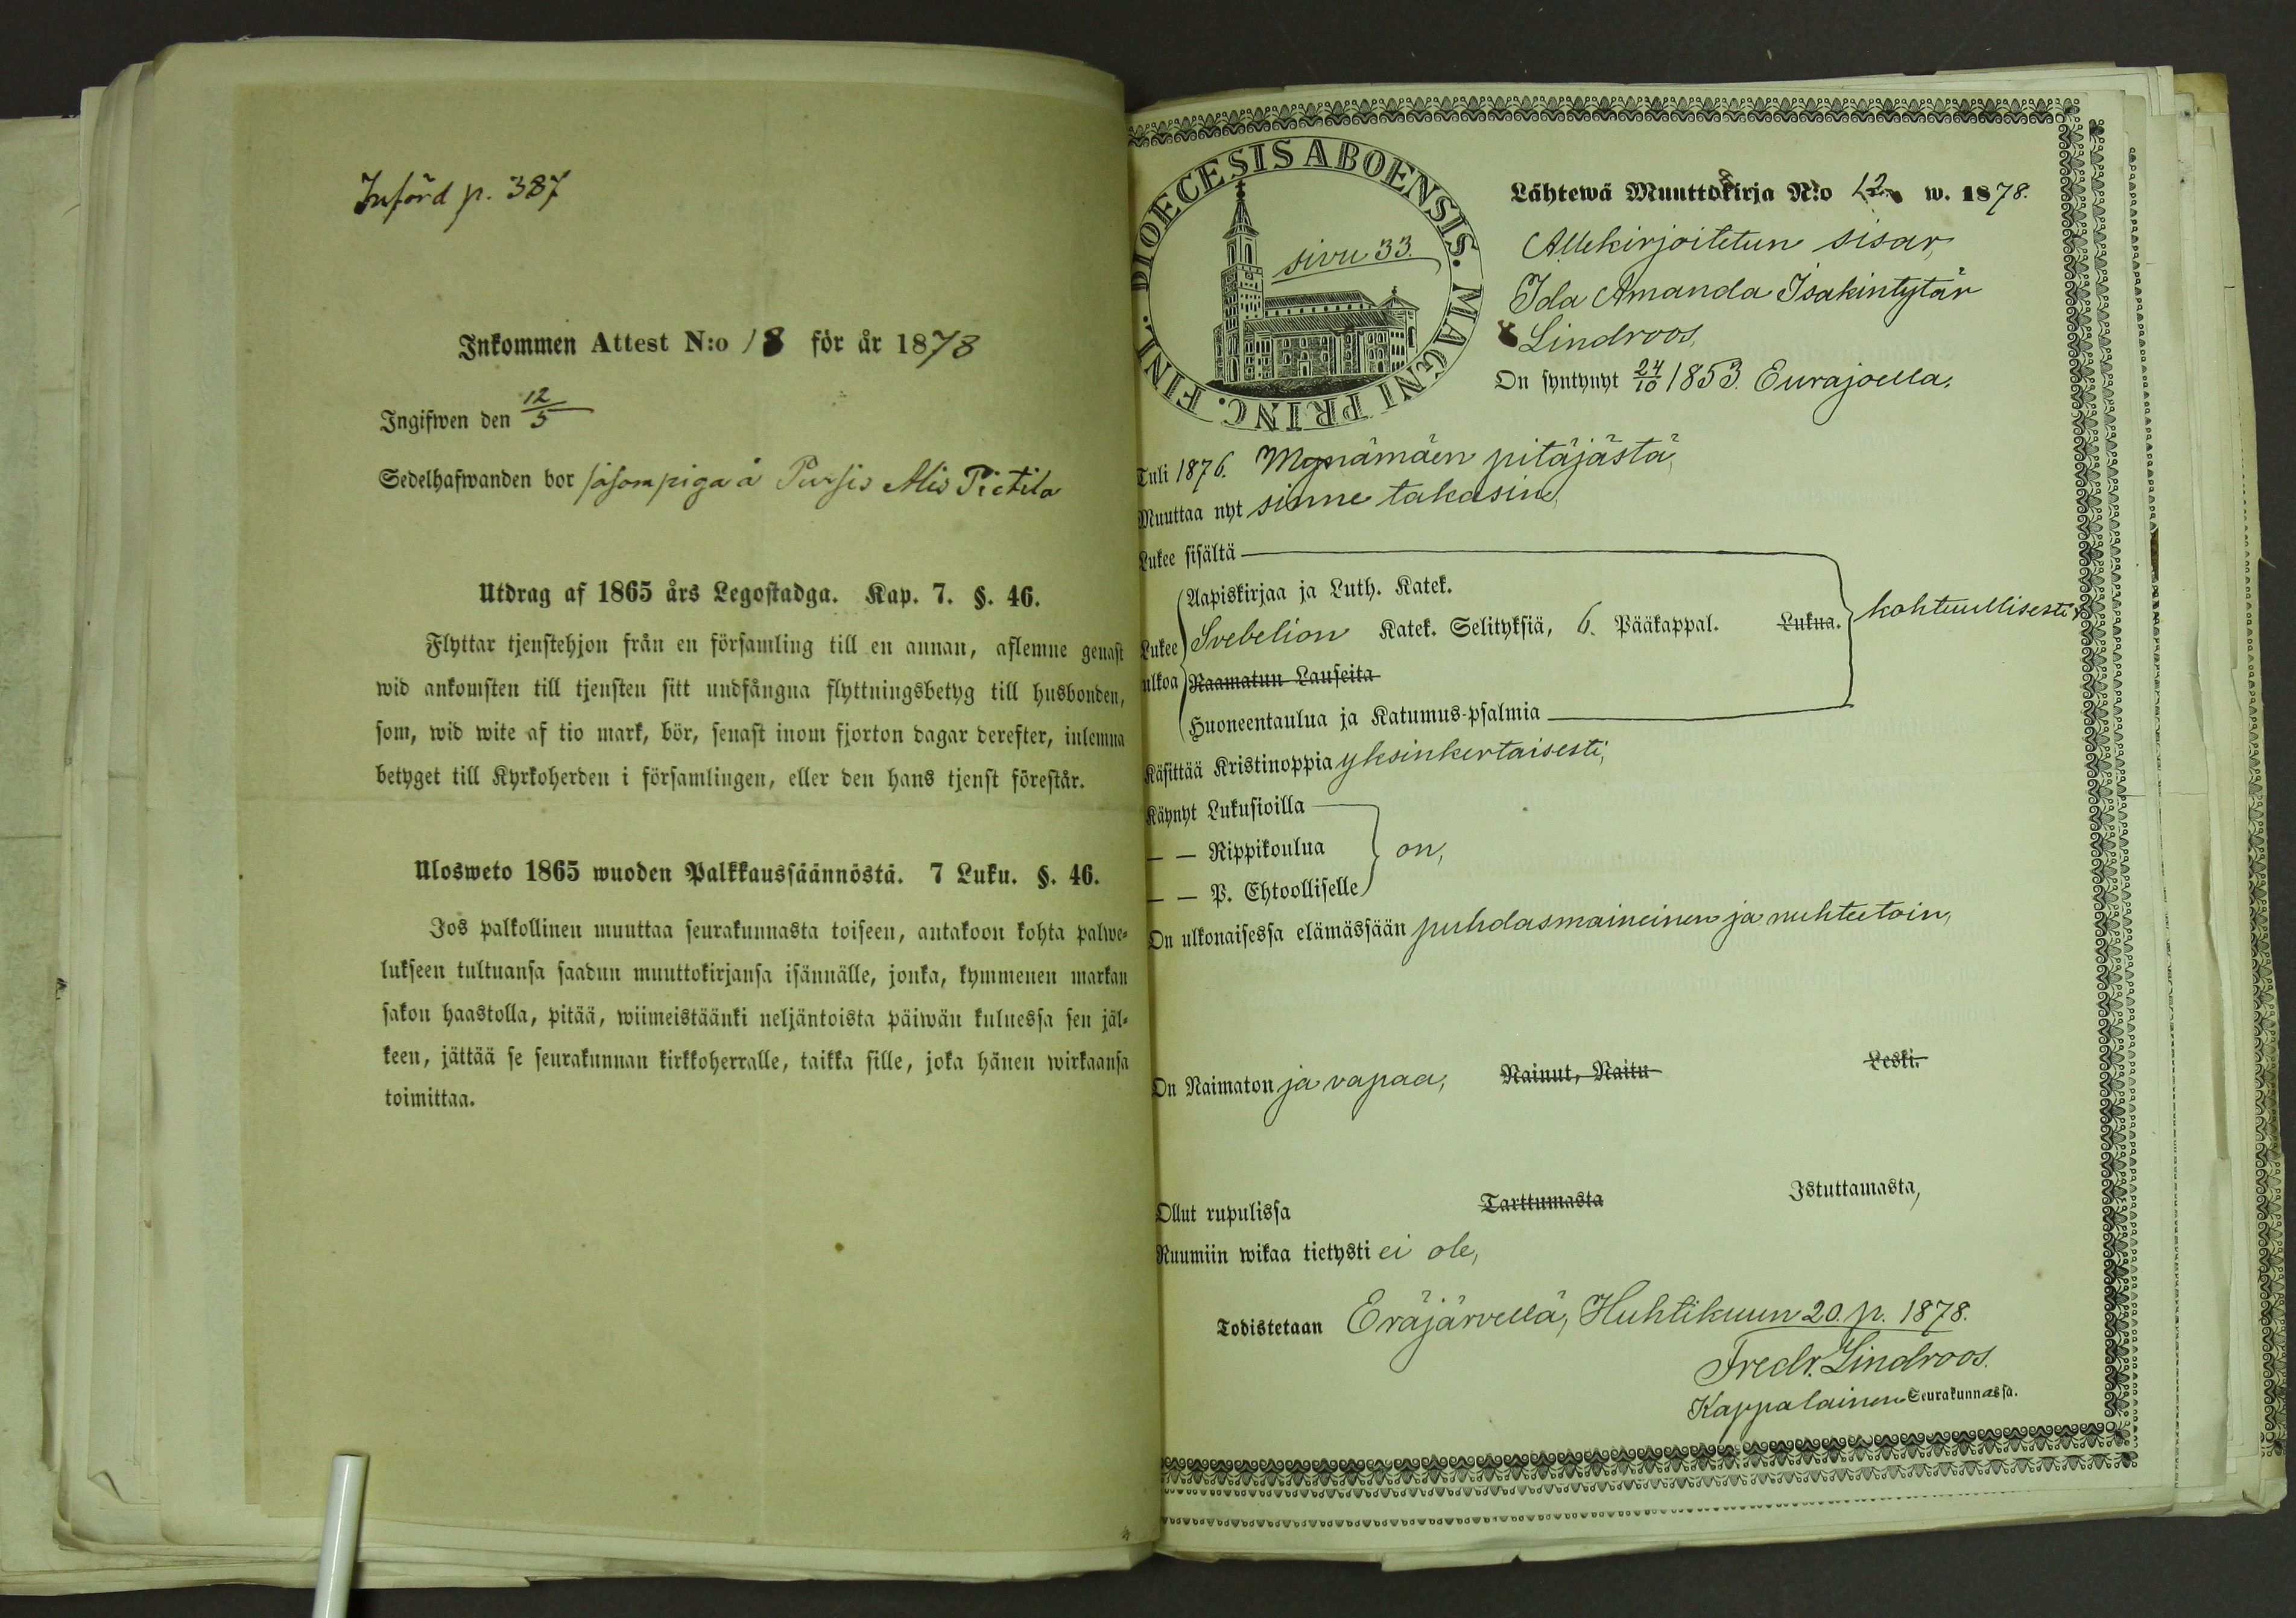 Införd p. 387
Inkommen Attest N:o 18 för år 1878
Ingifwen den 12/5
Sedelhafwanden bor såsom piga å Pursis Alis Pietila
Utdrag af 1865 års Legostadga. Kap. 7. §. 46.
Flyttar tjenstehjon från en församling till en annan, aflemne genast
wid ankomsten till tjensten sitt undfångna flyttningsbetyg till husbonden,
som, wid wite af tio mark, bör, senast inom fjorton dagar derefter, inlemna
betyget till Kyrkoherden i församlingen, eller den hans tjenst förestår.
Ulosweto 1865 wuoden Palkkaussäännöstä. 7 Luku. §. 46.
Jos palkollinen muuttaa seurakunnasta toiseen, antakoon kohta palwe-
lukseen tultuansa saadun muuttokirjansa isännälle, jonka, kymmenen markan
sakon haastolla, pitää, wiimeistäänki neljäntoista päiwän kuluessa sen jäl-
keen, jättää se seurakunnan kirkkoherralle, taikka sille, joka hänen wirkaansa
toimittaa.
DIOECESIS ABOENSIS. MAGNI PRINC. FINL.
sivu 33.
Lähtewä Muuttokirja N:o 12. w. 1878.
Allekirjoitetun sisar,
Ida Amanda Isakintytär
Lindroos,
On syntynyt 24/10 1853. Eurajoella.
Tuli 1876. Mynämäen pitäjästä,
Muuttaa nyt sinne takasin,
Lukee sisältä
Aapiskirjaa ja Luth. Katek.
Lukee ulkoa Svebelion Katek. Selityksiä, 6. Pääkappal. Lukua. kohtuullisesti,
Raamatun Lauseita
Huoneentaulua ja Katumus-psalmia
Käsittää Kristinoppia yksinkertaisesti,
Käynyt Lukusioilla
— — Rippikoulua on,
— — P. Ehtoolliselle
On ulkonaisessa elämässään puhdasmaineinen ja nuhteetoin,
On Naimaton ja vapaa, Nainut, Naitu Leski.
Ollut rupulissa Tarttumasta Istuttamasta,
Ruumiin wikaa tietysti ei ole,
Todistetaan Eräjärvellä, Huhtikuun 20. p. 1878.
Fredr. Lindroos.
Kappalainen Seurakunnassa.